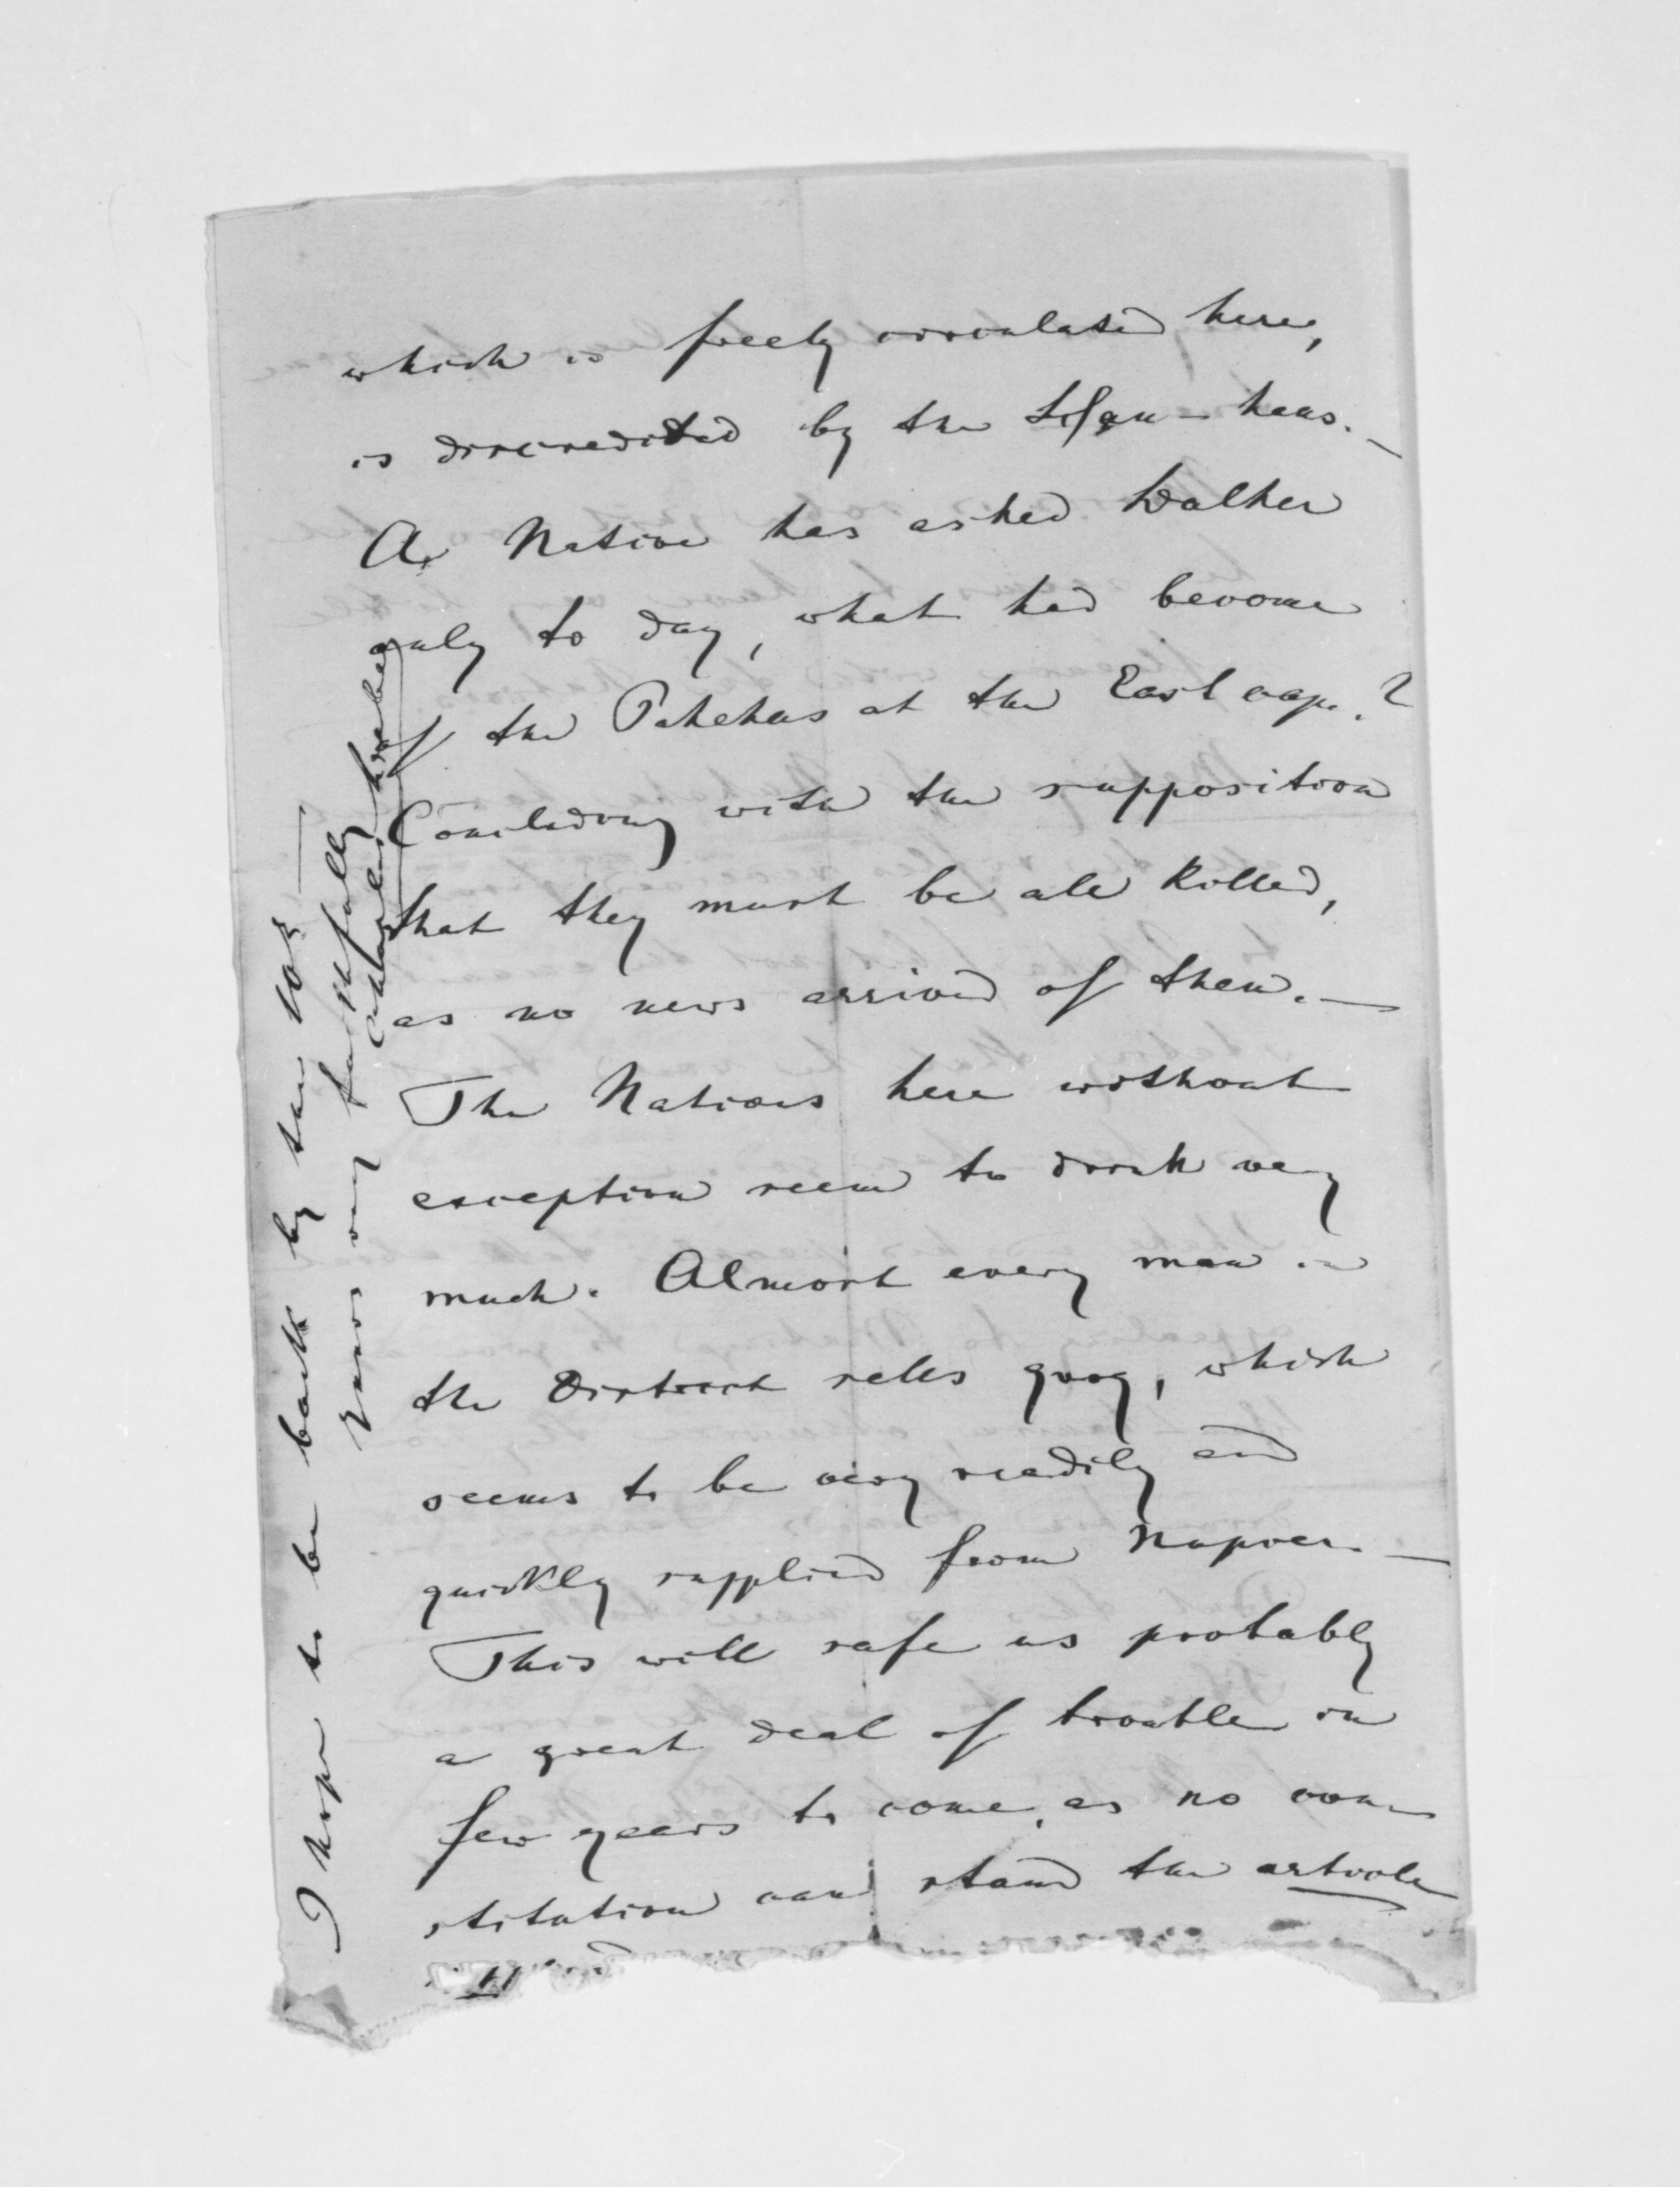 which is freely circulated here,
is discredited by the Hau-haus. —
A Native has asked Walker
only to day, what had become
of the Pakehas at the East cape. ?
Concluding with the supposition
that they must be all killed,
as no news arrived of them. —
The Natives here without
exception seem to drink very
much. Almost every man in
the District sells grog, which
seems to be very readily and
quickly supplied from Napier. —
This will safe us probably
a great deal of trouble in
few years to come, as no con-
stitution can stand the article
I hope to be back by the 10th —
Yours very faithfully
Charles